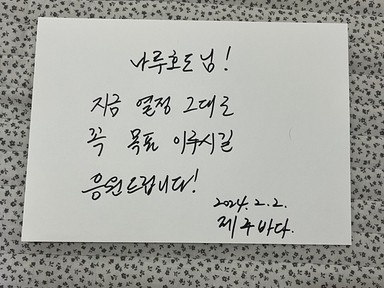 나루호도님!
지금 열정 그대로
꼭 목표 이루시길
응원드립니다!
2024.2.2.
제주바다.